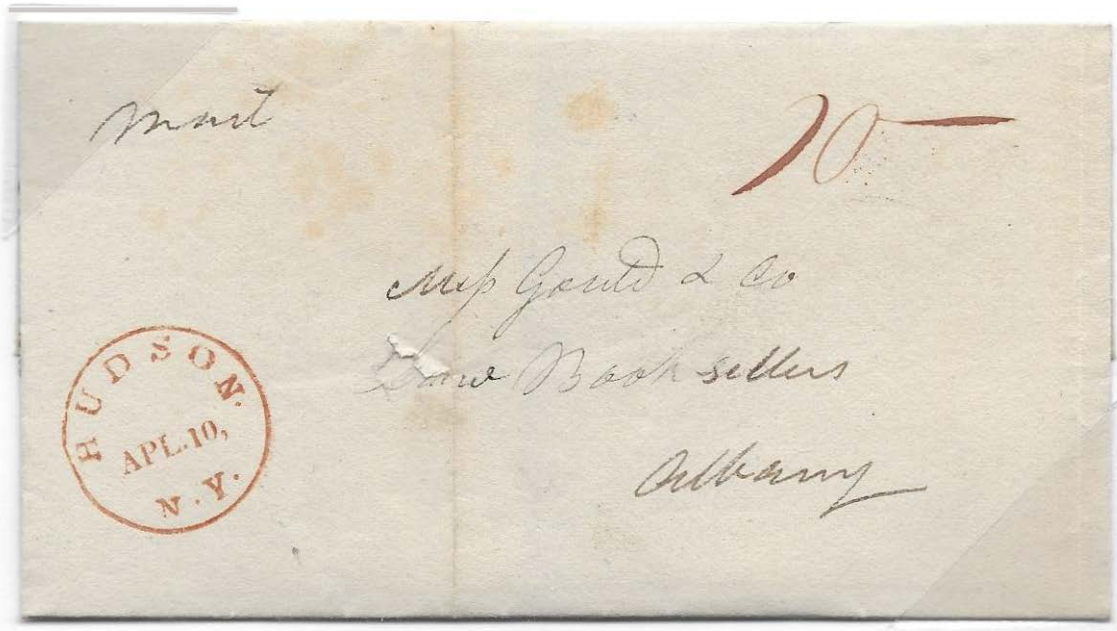 10
Mess Gould & Co
Law Booksellers
Albany
HUDSON.
APL.10,
N.Y.